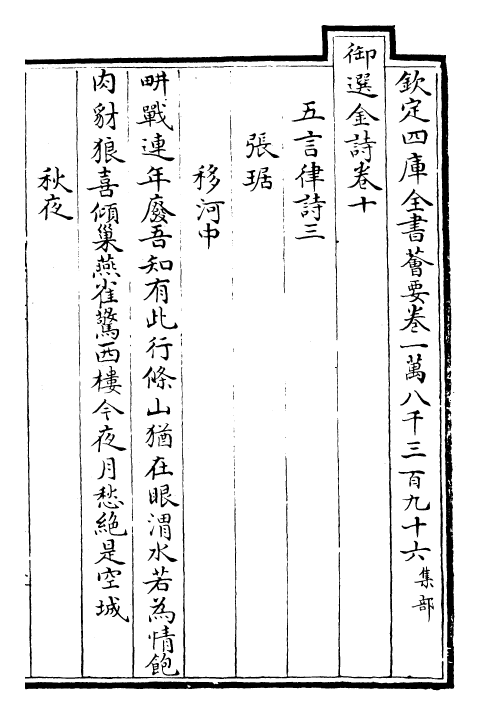 欽定四庫全書薈要卷一萬八千三百九十六集部
御選金詩卷十
五言律詩三
張琚
移河中
畊戰連年廢吾知有此行條山猶在眼渭水若為情飽
肉豺狼喜傾巢燕雀驚西樓今夜月愁絶是空城
秋夜